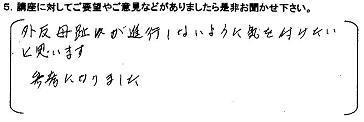 5. 講座に対してご要望やご意見などがありましたら是非お聞かせ下さい。
外反母趾が進行しないように気を付けたい
と思います
参考になりました